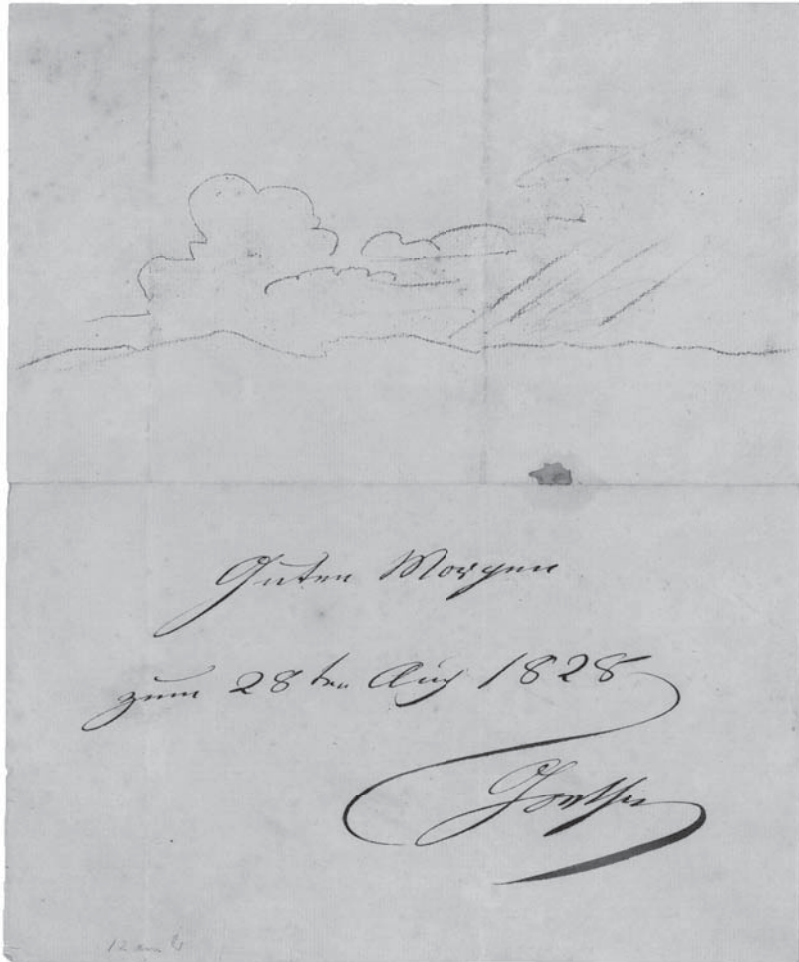 Guten Morgen
zum 28ten Aug 1828
Goethe